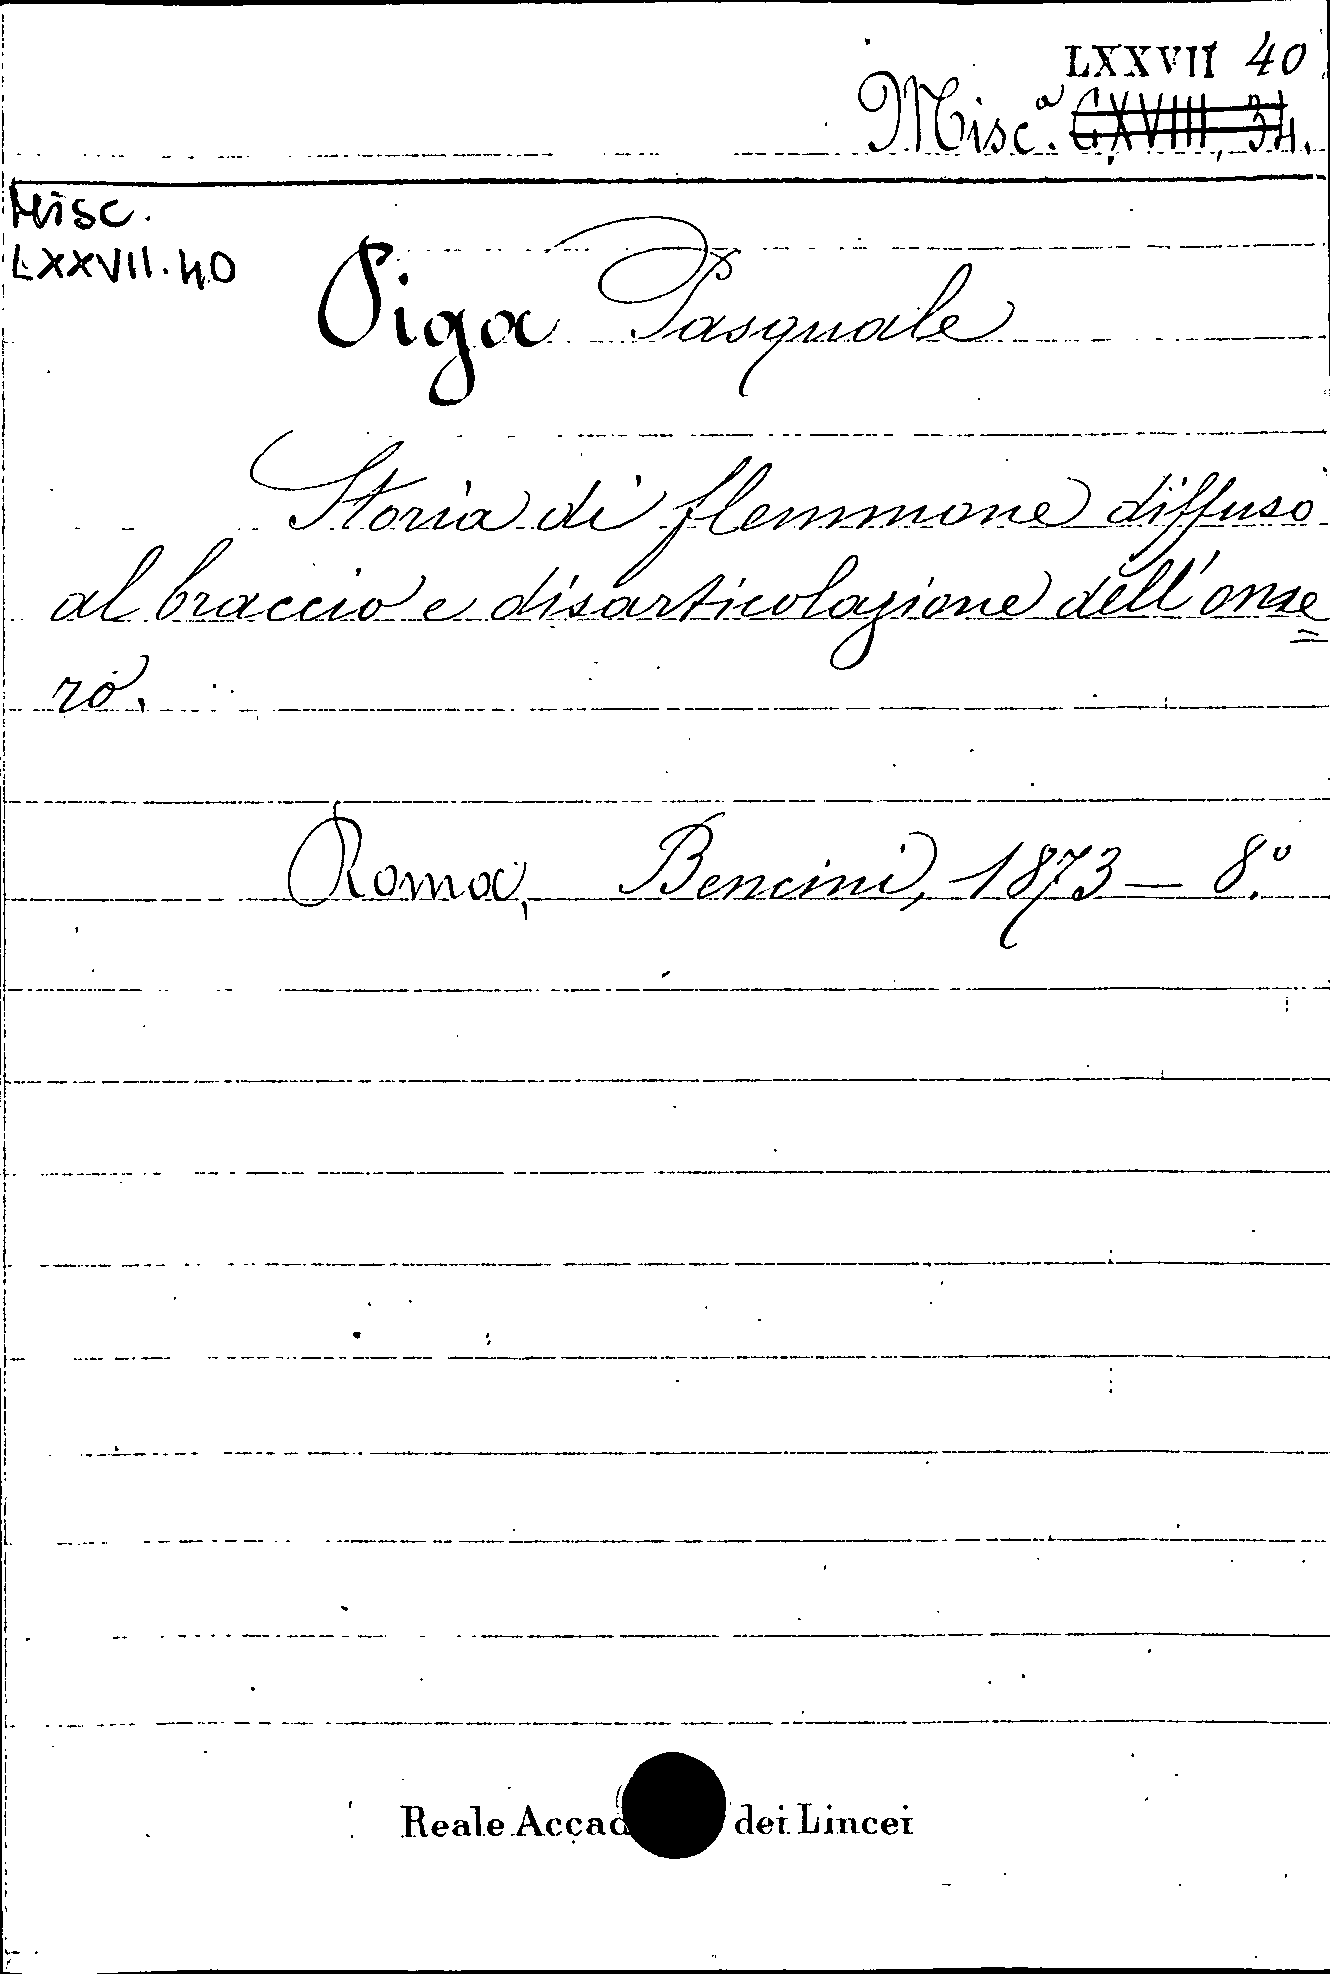 LXXVII 40
Misc.ª CXVIII, 34.
Misc.
LXXVII.40
Piga Pasquale
Storia di flemmone diffuso
al braccio e disarticolazione dell'ome=
ro.
Roma, Bencini, 1873 — 8.º
Reale Accad dei Lincei